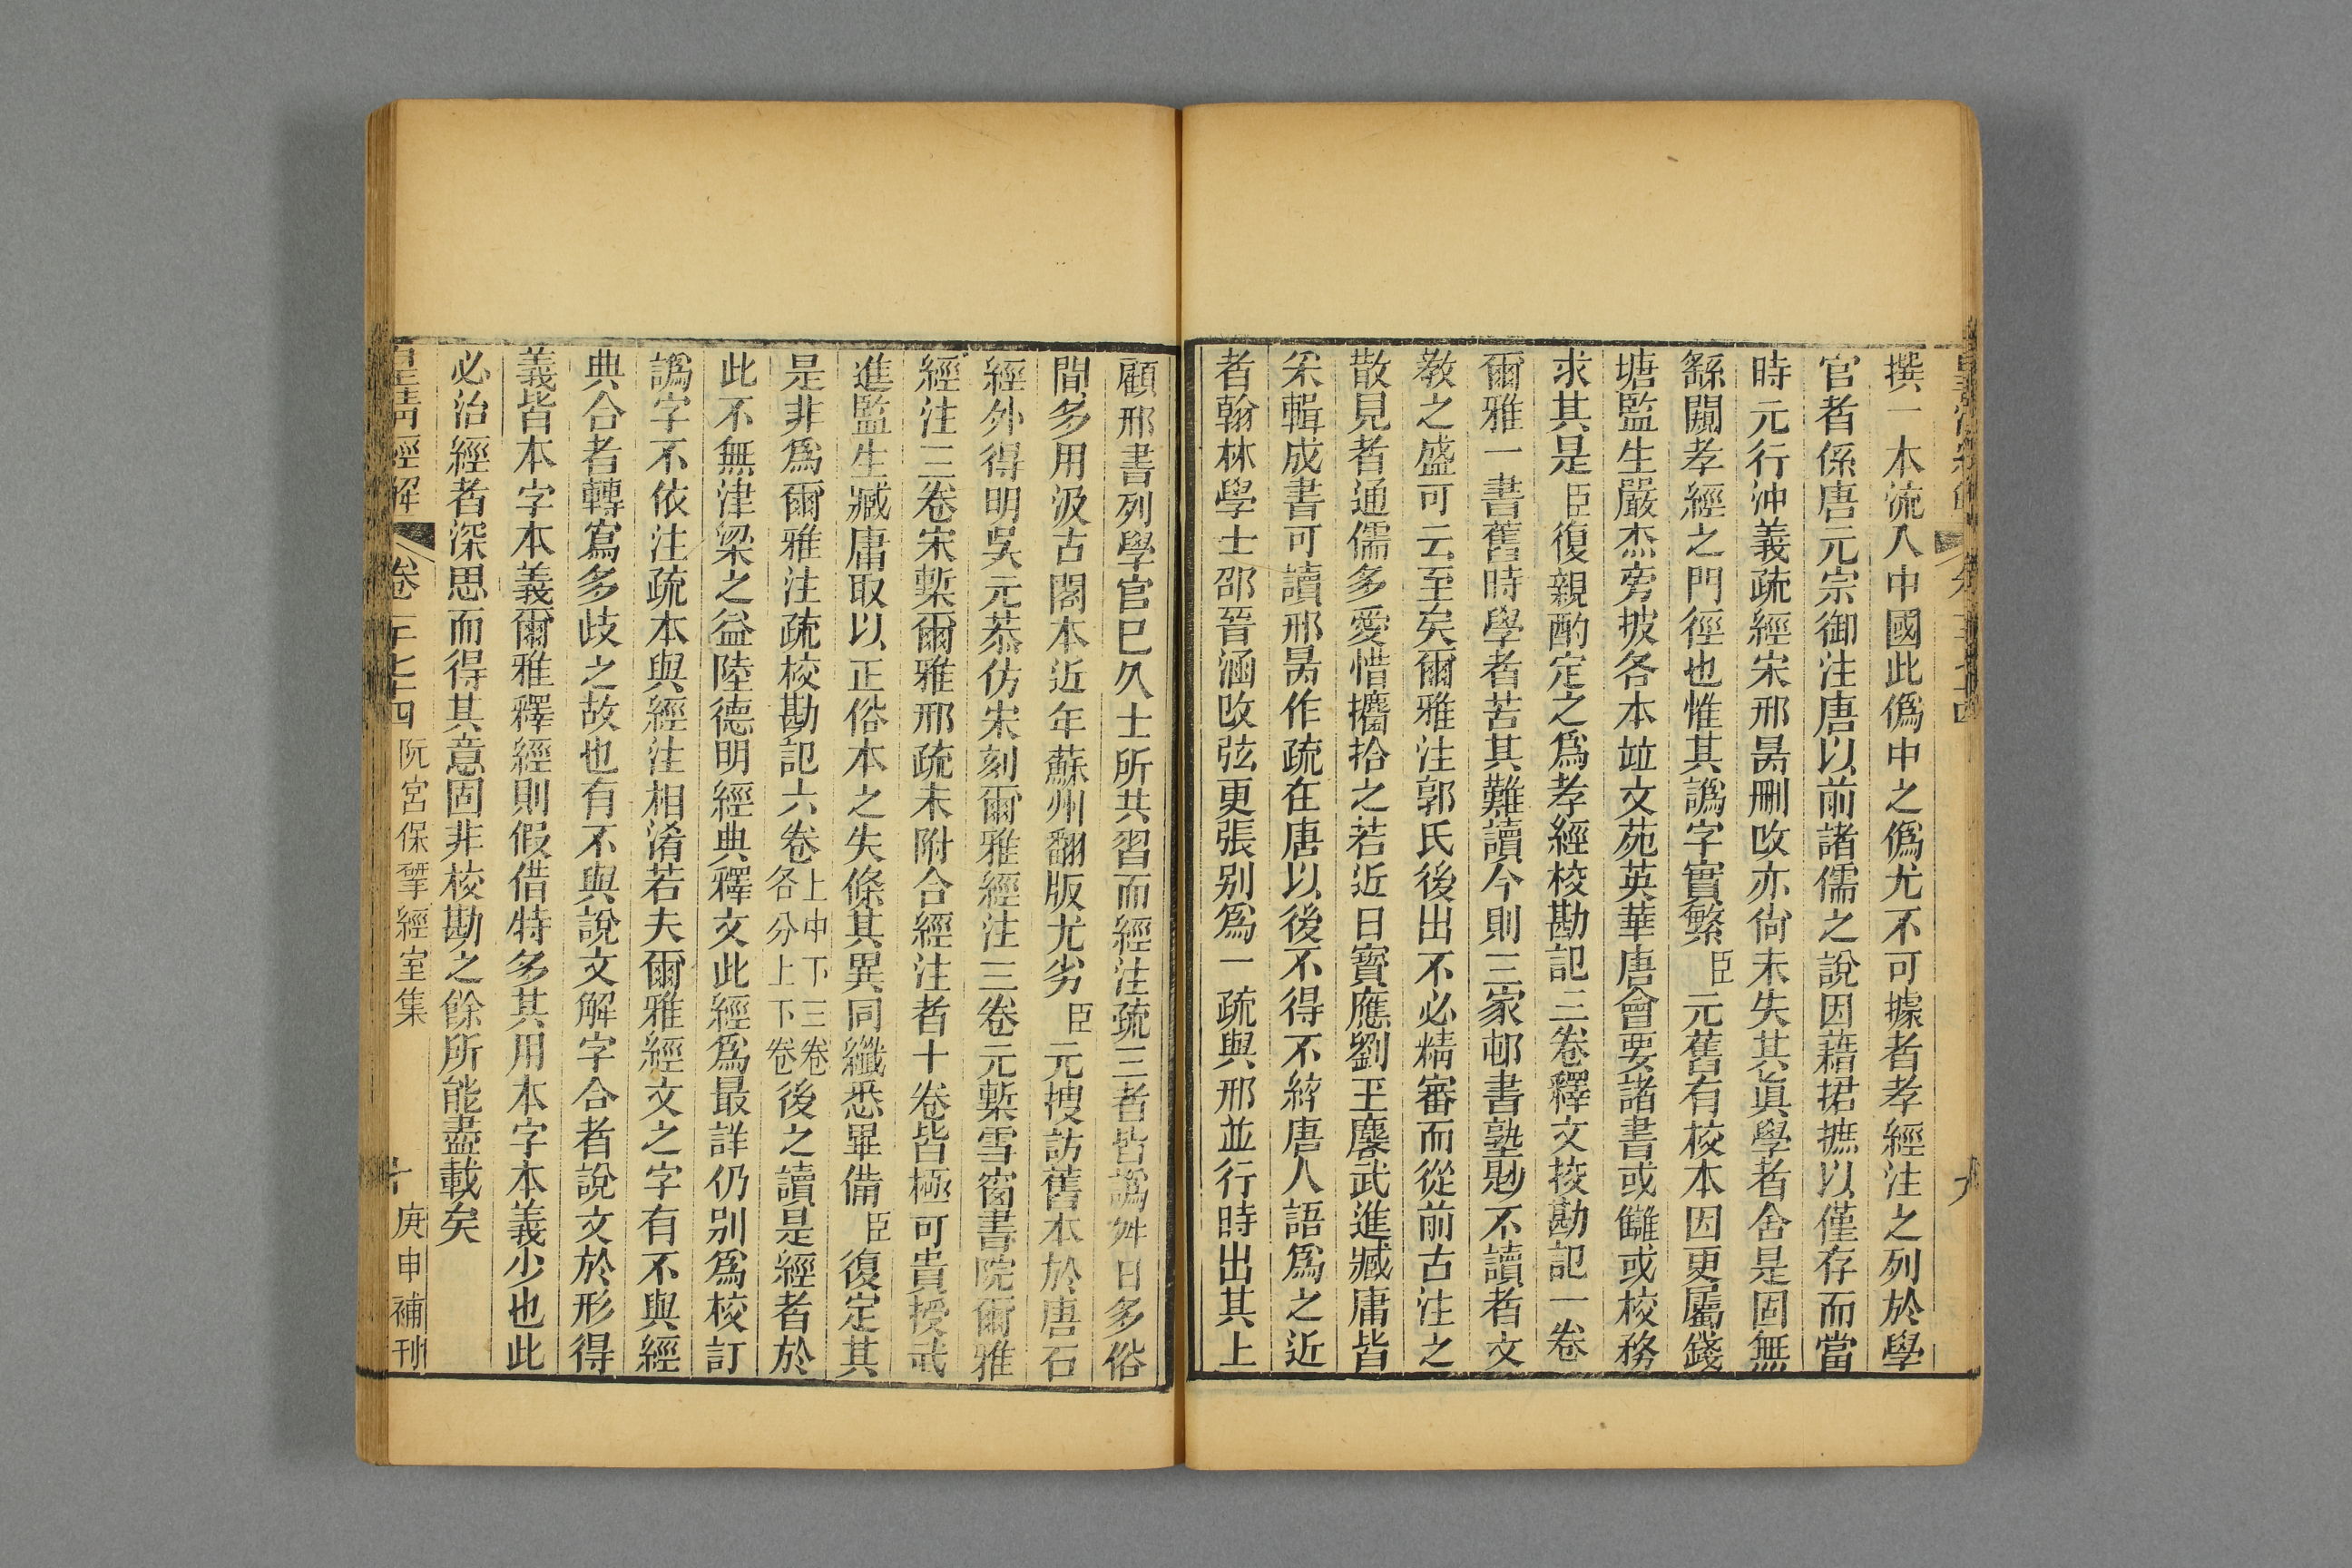 撰一本流入中國此僞中之僞尤不可據者孝經注之列於學
官者係唐元宗御注唐以前諸儒之說因藉捃摭以僅存而當
時元行沖義疏經宋邢昺刪改亦尙未失其眞學者舍是固無
繇闚孝經之門徑也惟其譌字實繁臣元舊有校本因更屬錢
塘監生嚴杰旁披各本竝文苑英華唐會要諸書或讎或校務
求其是臣復親酌定之爲孝經校勘記三卷釋文挍勘記一卷
爾雅一書舊時學者苦其難讀今則三家邨書塾尠不讀者文
敎之盛可云至矣爾雅注郭氏後出不必精審而從前古注之
散見者通儒多愛惜攟拾之若近日寶應劉玉麐武進臧庸皆
采輯成書可讀邢昺作疏在唐以後不得不綷唐人語爲之近
者翰林學士邵晉涵改弦更張别爲一疏與邢並行時出其上
顧邢書列學官已久士所共習而經注疏三者皆譌舛日多俗
間多用汲古閣本近年蘇州翻版尤劣臣元搜訪舊本於唐石
經外得明吳元恭仿宋刻爾雅經注三卷元槧雪窗書院爾雅
經注三卷宋槧爾雅邢疏未附合經注者十卷皆極可貴授武
進監生臧庸取以正俗本之失條其異同纖悉畢備臣復定其
是非爲爾雅注疏校勘記六卷上中下三卷各分上下卷後之讀是經者於
此不無津梁之益陸德明經典釋文此經爲最詳仍别爲校訂
譌字不依注疏本與經注相淆若夫爾雅經文之字有不與經
典合者轉寫多歧之故也有不與說文解字合者說文於形得
義皆本字本義爾雅釋經則假借特多其用本字本義少也此
必治經者深思而得其意固非校勘之餘所能盡載矣
皇淸經解 卷一千七十四 阮宮保揅經室集 十 庚申補刊